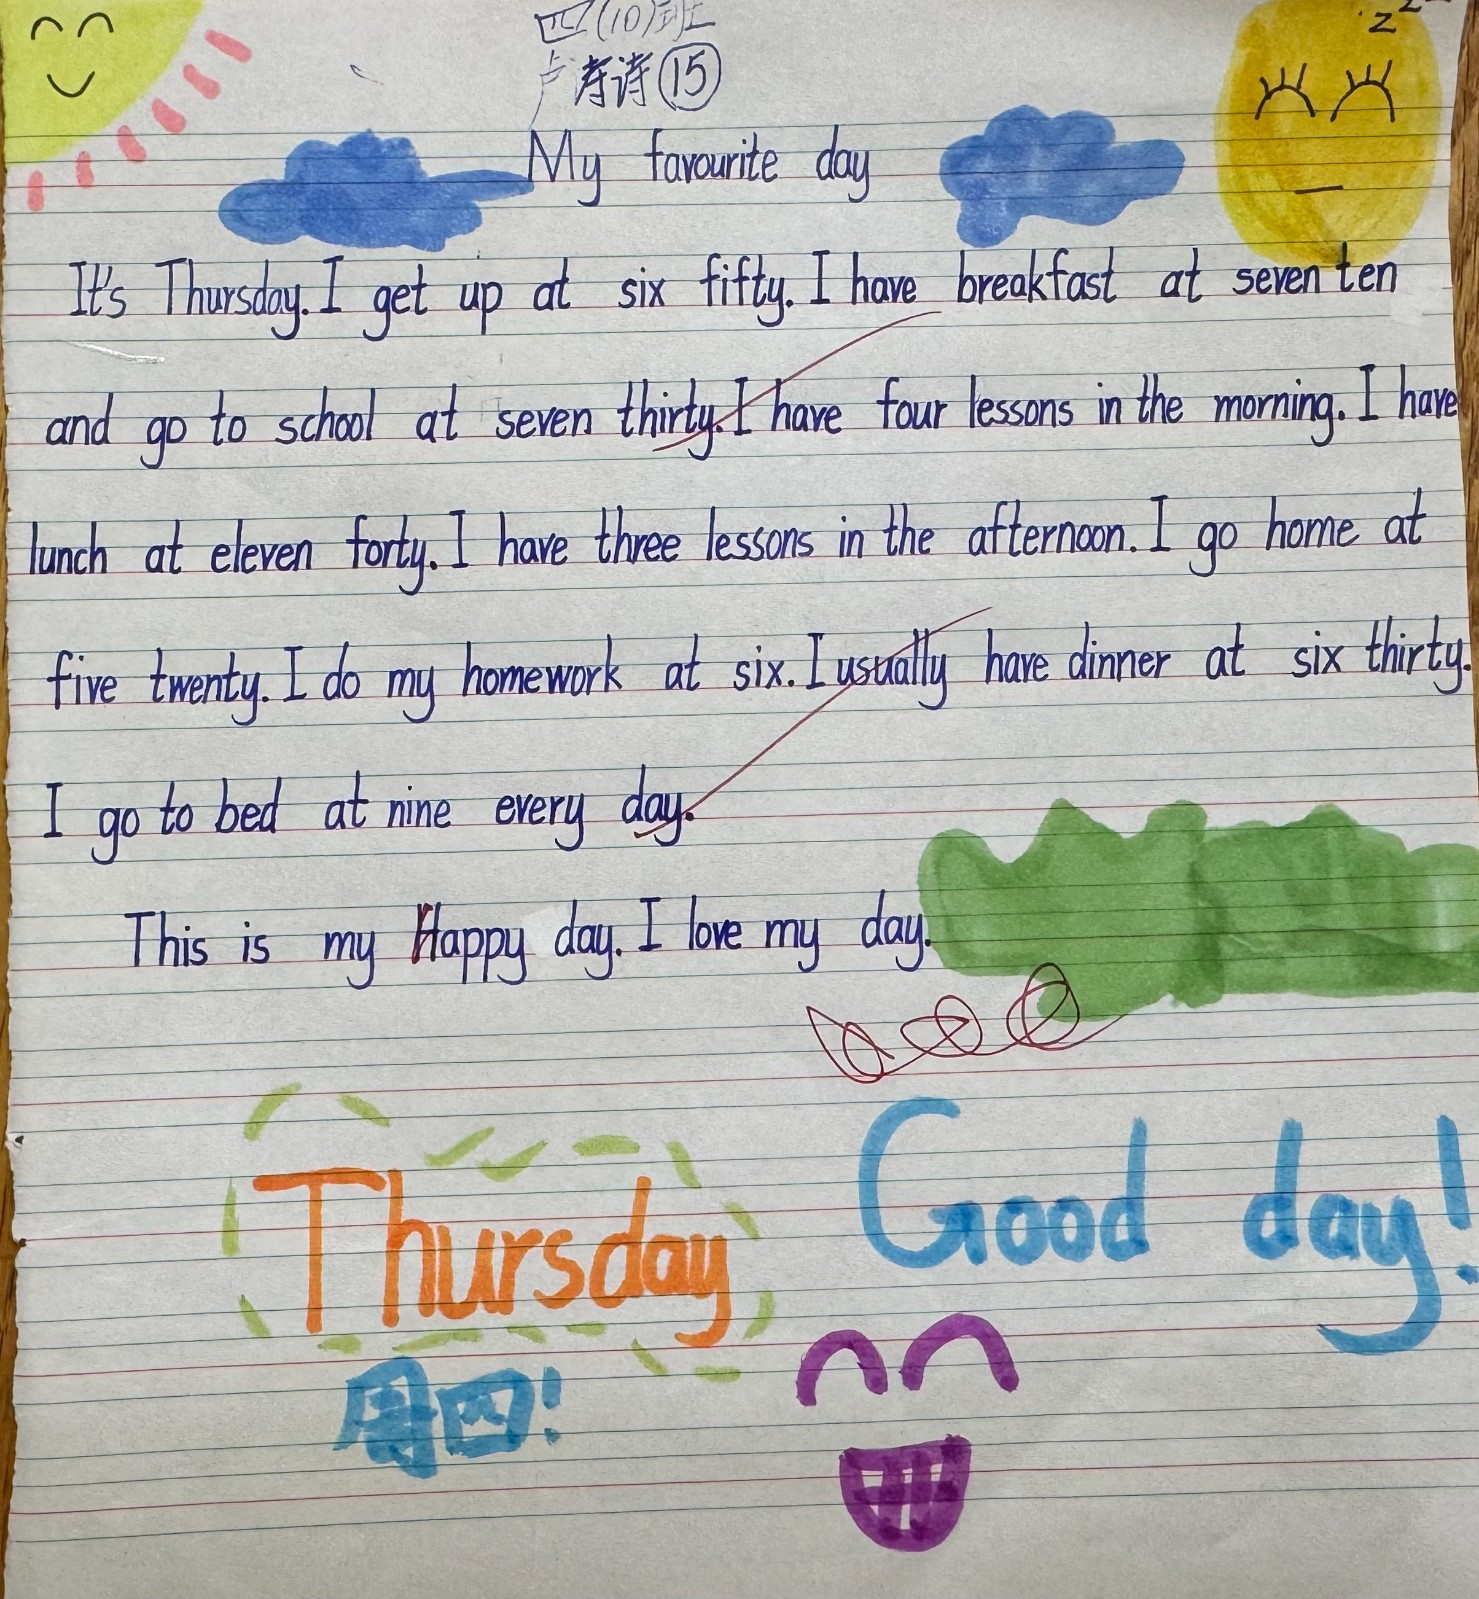 四(10)班
卢寿诗 15
My favourite day
z z
It's Thursday. I get up at six fifty. I have breakfast at seven ten
and go to school at seven thirty. I have four lessons in the morning. I have
lunch at eleven forty. I have three lessons in the afternoon. I go home at
five twenty. I do my homework at six. I usually have dinner at six thirty.
I go to bed at nine every day.
This is my Happy day. I love my day.
Thursday
Good day!
周四!